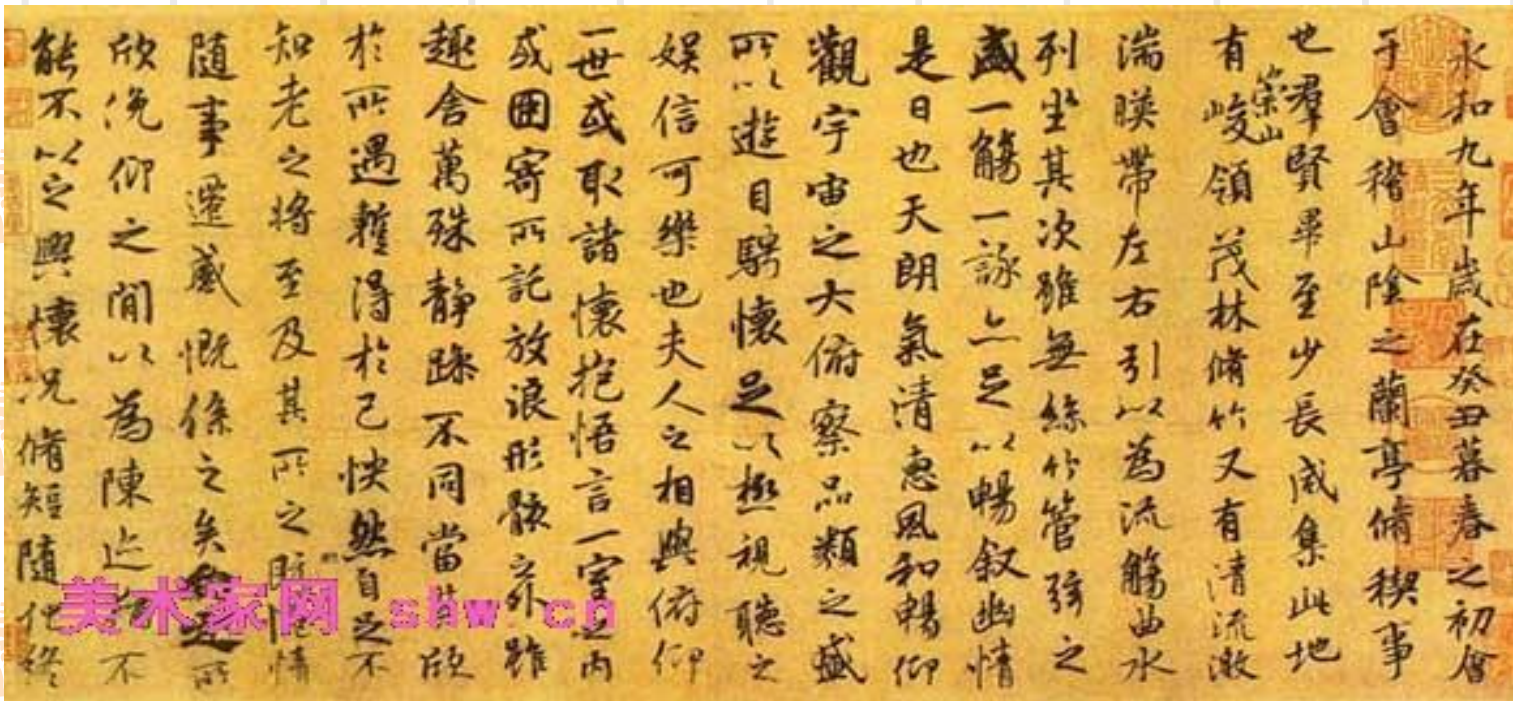 永和九年歲在癸丑暮春之初會
于會稽山陰之蘭亭脩稧事
也羣賢畢至少長咸集此地
有崇山峻領茂林脩竹又有清流激
湍暎帶左右引以為流觴曲水
列坐其次雖無絲竹管弦之
盛一觴一詠亦足以暢叙幽情
是日也天朗氣清惠風和暢仰
觀宇宙之大俯察品類之盛
所以遊目騁懷足以極視聽之
娛信可樂也夫人之相與俯仰
一世或取諸懷抱悟言一室之內
或因寄所託放浪形骸之外雖
趣舍萬殊靜躁不同當其欣
於所遇蹔得於己怏然自足不
知老之將至及其所之既惓情
隨事遷感慨係之矣向之所
欣俛仰之間以為陳迹猶不
能不以之興懷況脩短隨化終
美术家网 shw.cn